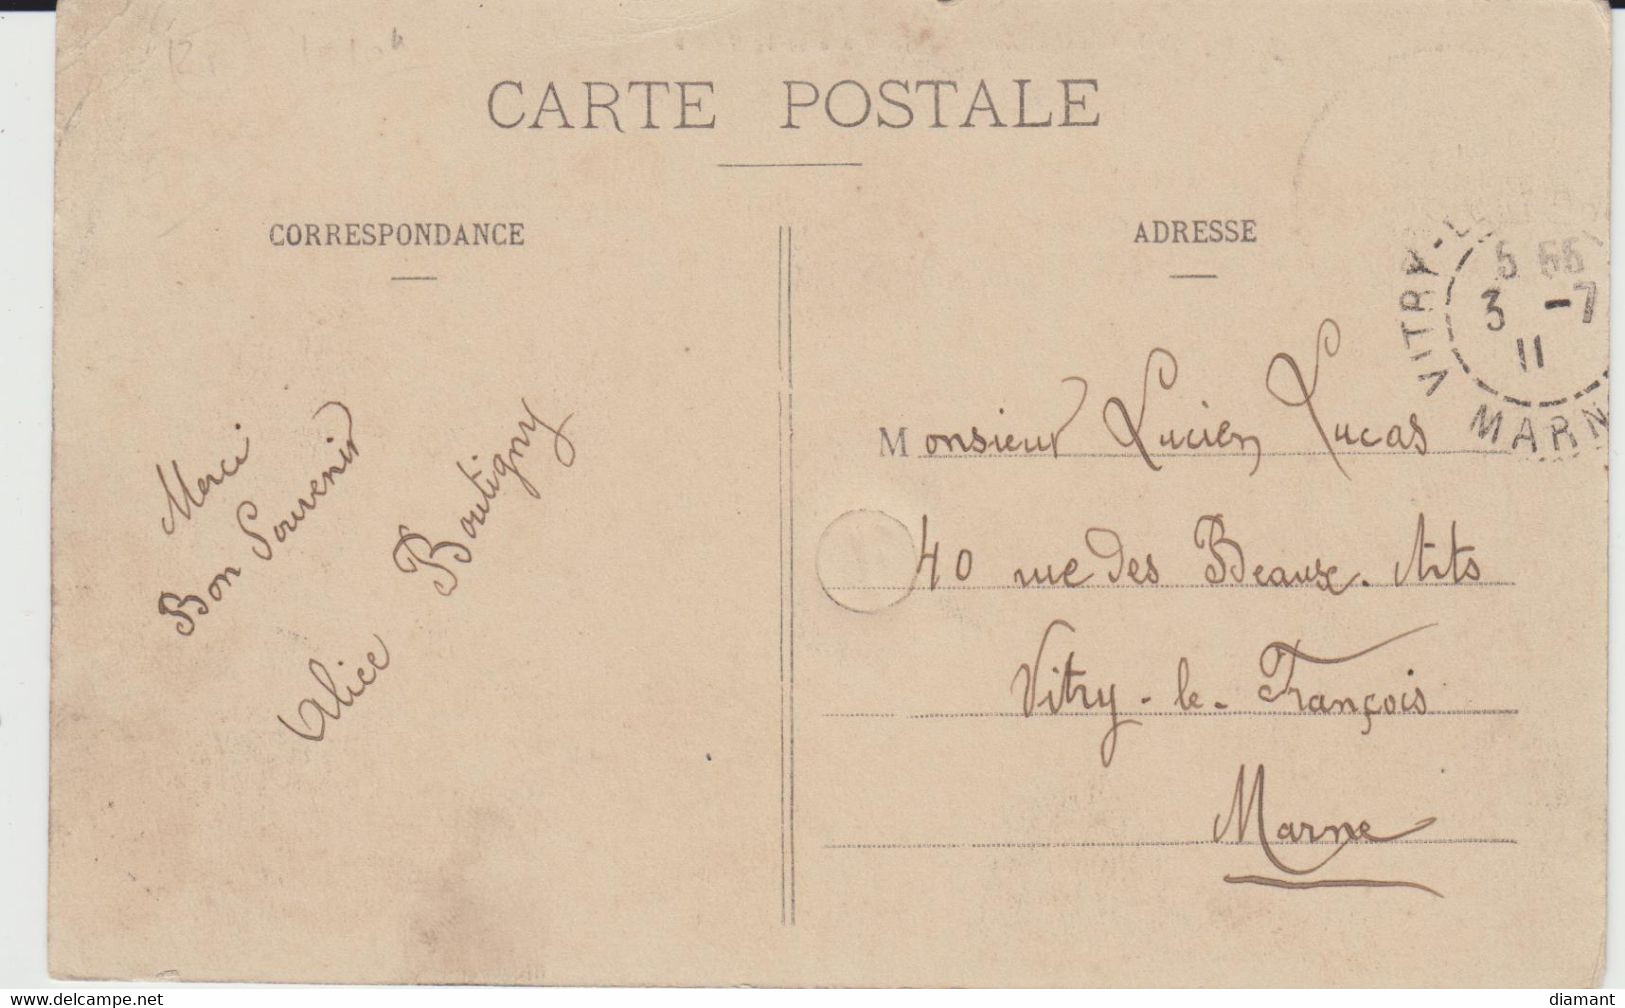 CARTE POSTALE
CORRESPONDANCE
Merci
Bon Souvenir
Alice Boutigny
ADRESSE
VITRY-LE-
5 55
3 -7
11
MARN
Monsieur Lucien Lucas
40 rue des Beaux. Arts
Vitry-le-François
Marne
www.delcampe.net
diamant